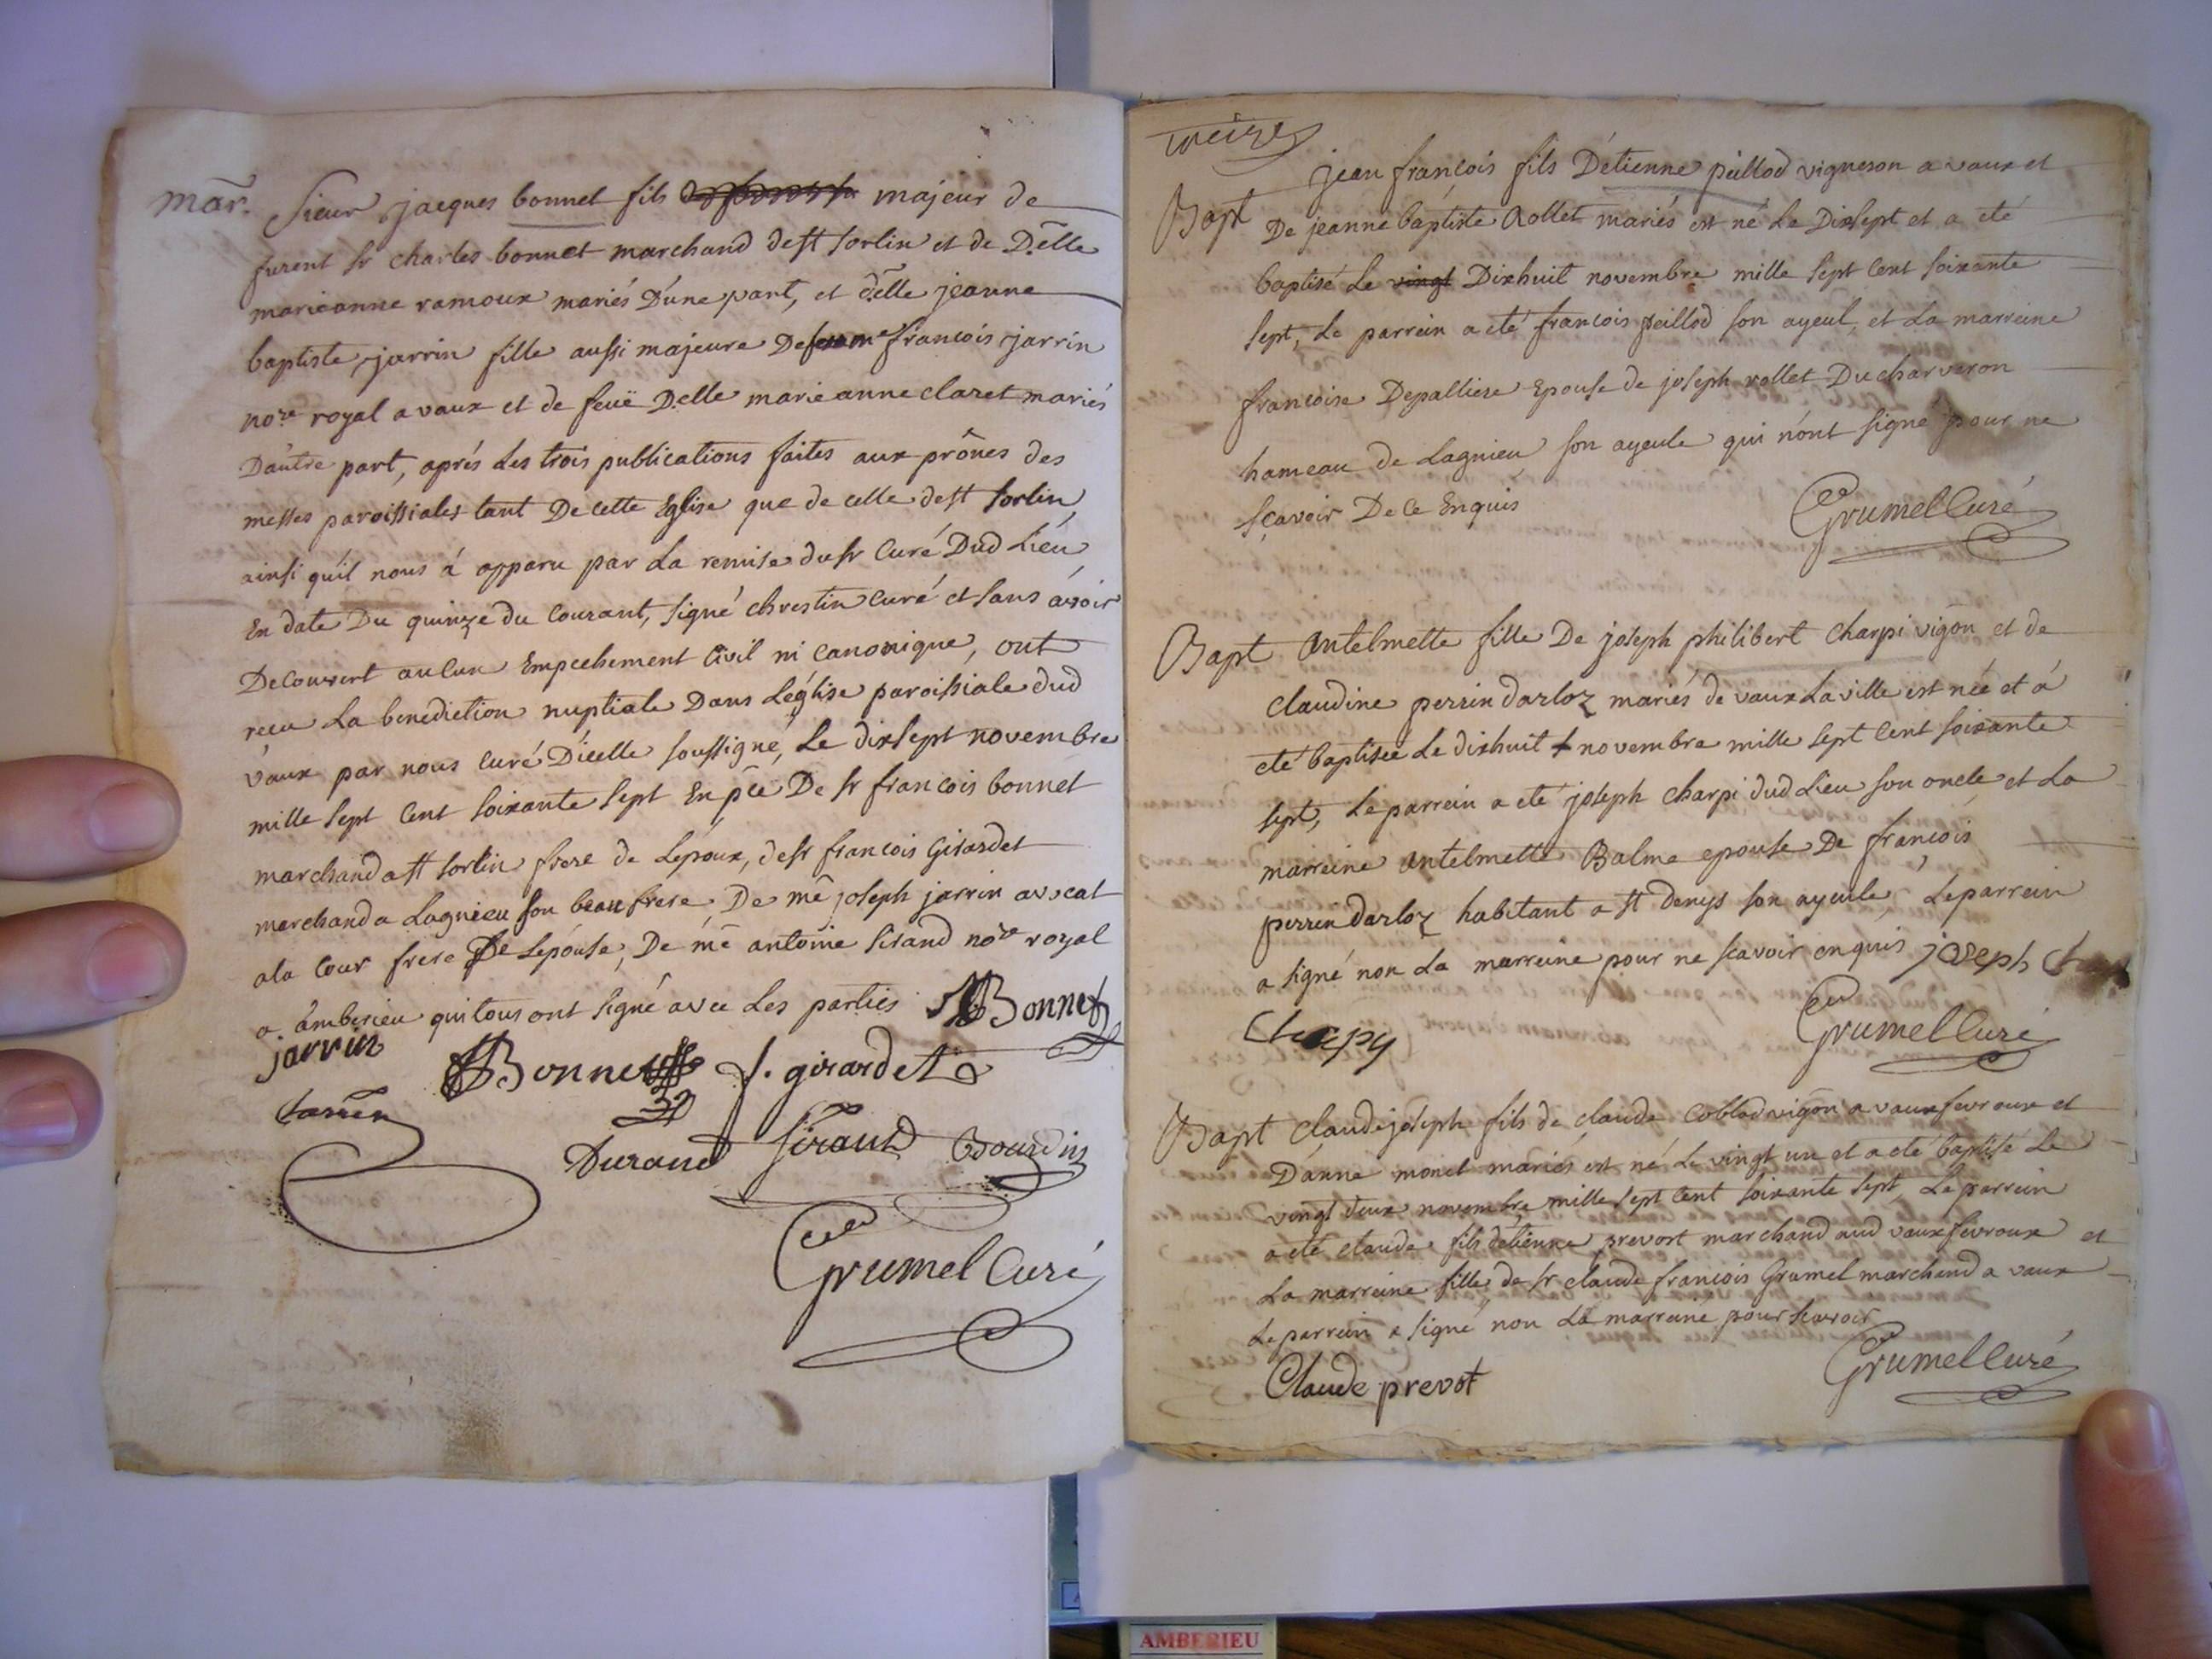 mar. Sieur jacques bonnet fils majeur de
furent sr charles bonnet marchand de st sorlin et de Delle
marieanne ramoux mariés D'une part, et delle jeanne
baptiste jarrin fille aussi majeure De francois jarrin
nore royal a vaux et de feuë Delle marie anne claret mariés
D'autre part, aprés Les trois publications faites aux prônes des
messes paroissiales tant De cette Eglise que de celle de st sorlin,
ainsi qu'il nous á apparu par La remise du sr Curé Dud Lieu
En date Du quinze du Courant, signé chrestin Curé et sans avoir
Decouvert aucun Empechement Civil ni canonique, ont
recu La benediction nuptiale Dans L'église paroissiale dud
vaux par nous Curé D'icelle soussigné, Le dixsept novembre
mille sept Cent soixante sept En pce De sr francois bonnet
marchand a st sorlin frere de L'epoux, de sr francois Girardet
marchand a Lagnieu son beaufrere, De me joseph jarrin avocat
a la Cour frere De L'epouse, De me antoine sirand nore royal
a amberieu qui tous ont signé avec Les parties Bonnet
jarrin
Bonnet f. girardet
jarrin
Durand sirand Bourdin
Grumel Curé
treize
jean francois fils D'etienne peillod vigneron a vaux et
Bapt De jeanne baptiste Rollet mariés est né Le Dixsept et a eté
baptisé Le vingt Dixhuit novembre mille sept Cent soixante
sept, Le parrein a eté francois peillod son ayeul, et La marreine
francoise Depalliere Epouse de joseph rollet Du charveron
hameau de Lagnieu son ayeule qui n'ont signé pour ne
sçavoir De Ce Enquis
Grumel Curé
Bapt antelmette fille De joseph philibert Charpi vigon et de
claudine perrin darloz mariés de vaux La ville est née et á
eté baptisée Le dixhuit novembre mille sept Cent soixante
sept, Le parrein a eté joseph Charpi dud Lieu son oncle et La
marreine antelmette Balme epouse De francois
perrin darloz habitant a st denys son ayeule, Le parrein
a signé non La marreine pour ne scavoir enquis joseph
Charpy
Grumel Curé
Bapt Claude joseph fils de claude Coblod vigon a vaux fevroux et
D'anne monet mariés est né Le vingt un et a eté baptisé Le
vingt deux novembre mille sept Cent soixante sept, Le parrein
a eté claude fils d'etienne prevort marchand aud vaux fevroux et
La marreine fille de sr claude francois Grumel marchand a vaux
Le parrein a signé non La marreine pour scavoir
Claude prevot
Grumel Curé
AMBERIEU